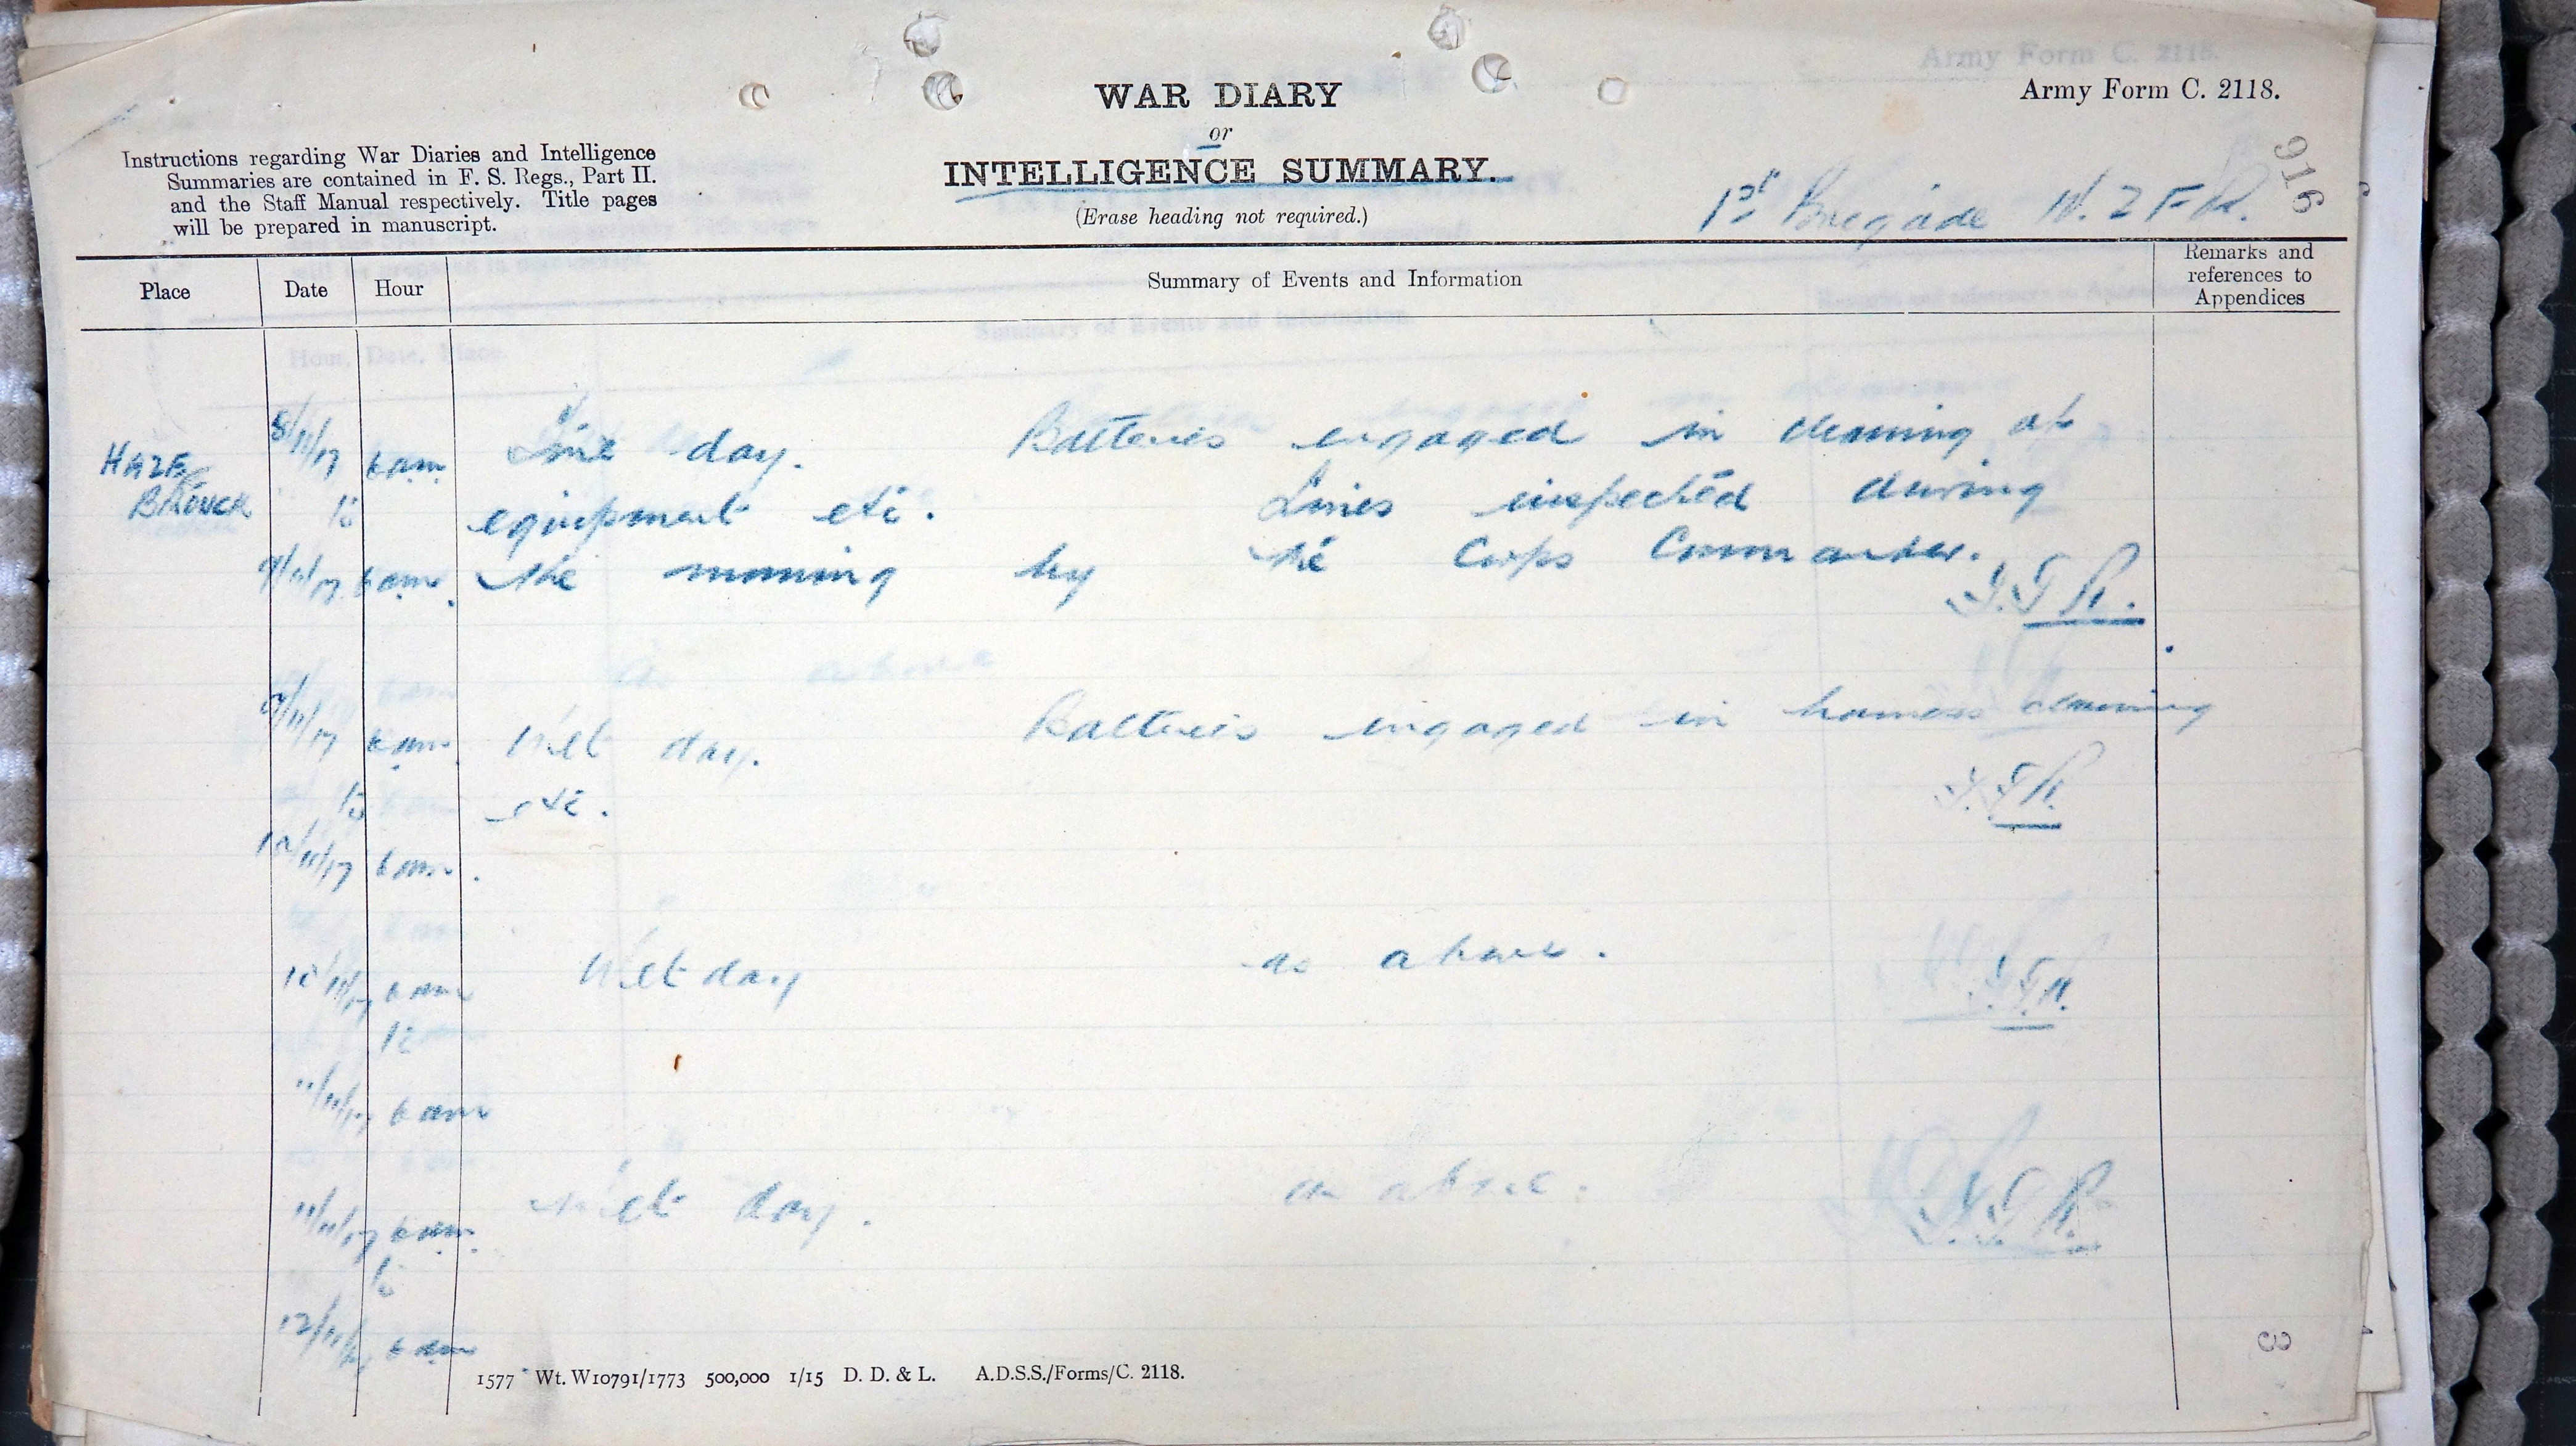 Army Form C. 2118.
WAR DIARY
or
INTELLIGENCE SUMMARY.
(Erase heading not required.)
Instructions regarding War Diaries and Intelligence
Summaries are contained in F. S. Regs., Part II.
and the Staff Manual respectively. Title pages
will be prepared in manuscript.
1st Brigade N. Z F A.
916
Place Date Hour Summary of Events and Information Remarks and
references to
Appendices
HAZE 8/11/17 6 am Fine day. Batteries engaged in cleaning of
BROUCK to equipment etc. Lines inspected during
9/11/17 6 am. the morning by the Corps Commander.
9/11/17 6 am. Wet day. Batteries engaged in harness cleaning
to etc.
10/11/17 6 am.
10/11/17 6 am Wet day as above.
to
11/11/17 6 am
11/11/17 6 am. Wet day. as above.
to
12/11/17 6 am
3
1577 Wt. W10791/1773 500,000 1/15 D. D. & L. A.D.S.S./Forms/C. 2118.